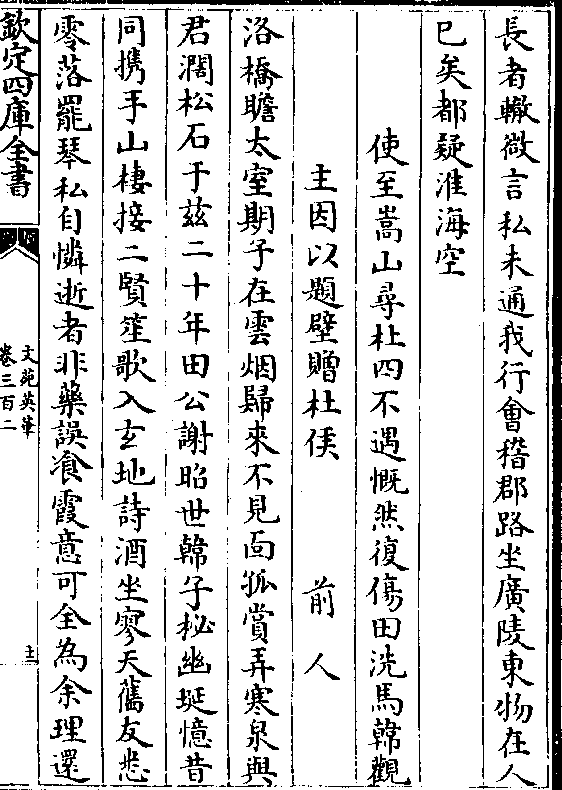 長者轍微言私未通我行會稽郡路坐廣陵東物在人
已矣都疑淮海空
使至嵩山尋杜四不遇慨然復傷田洗馬韓觀
主因以題壁贈杜侯　前人
洛橋瞻太室期子在雲烟歸來不見面孤賞弄寒泉與
君濶松石于兹二十年田公謝昭世韓子秘幽埏憶昔
同携手山棲接二賢笙歌入玄地詩酒坐寥天舊友悲
零落罷琴私自憐逝者非藥誤飡霞意可全為余理還
欽定四庫全書
文苑英華
卷三百二